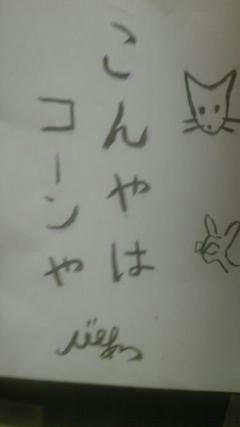 こんやは
コーンや